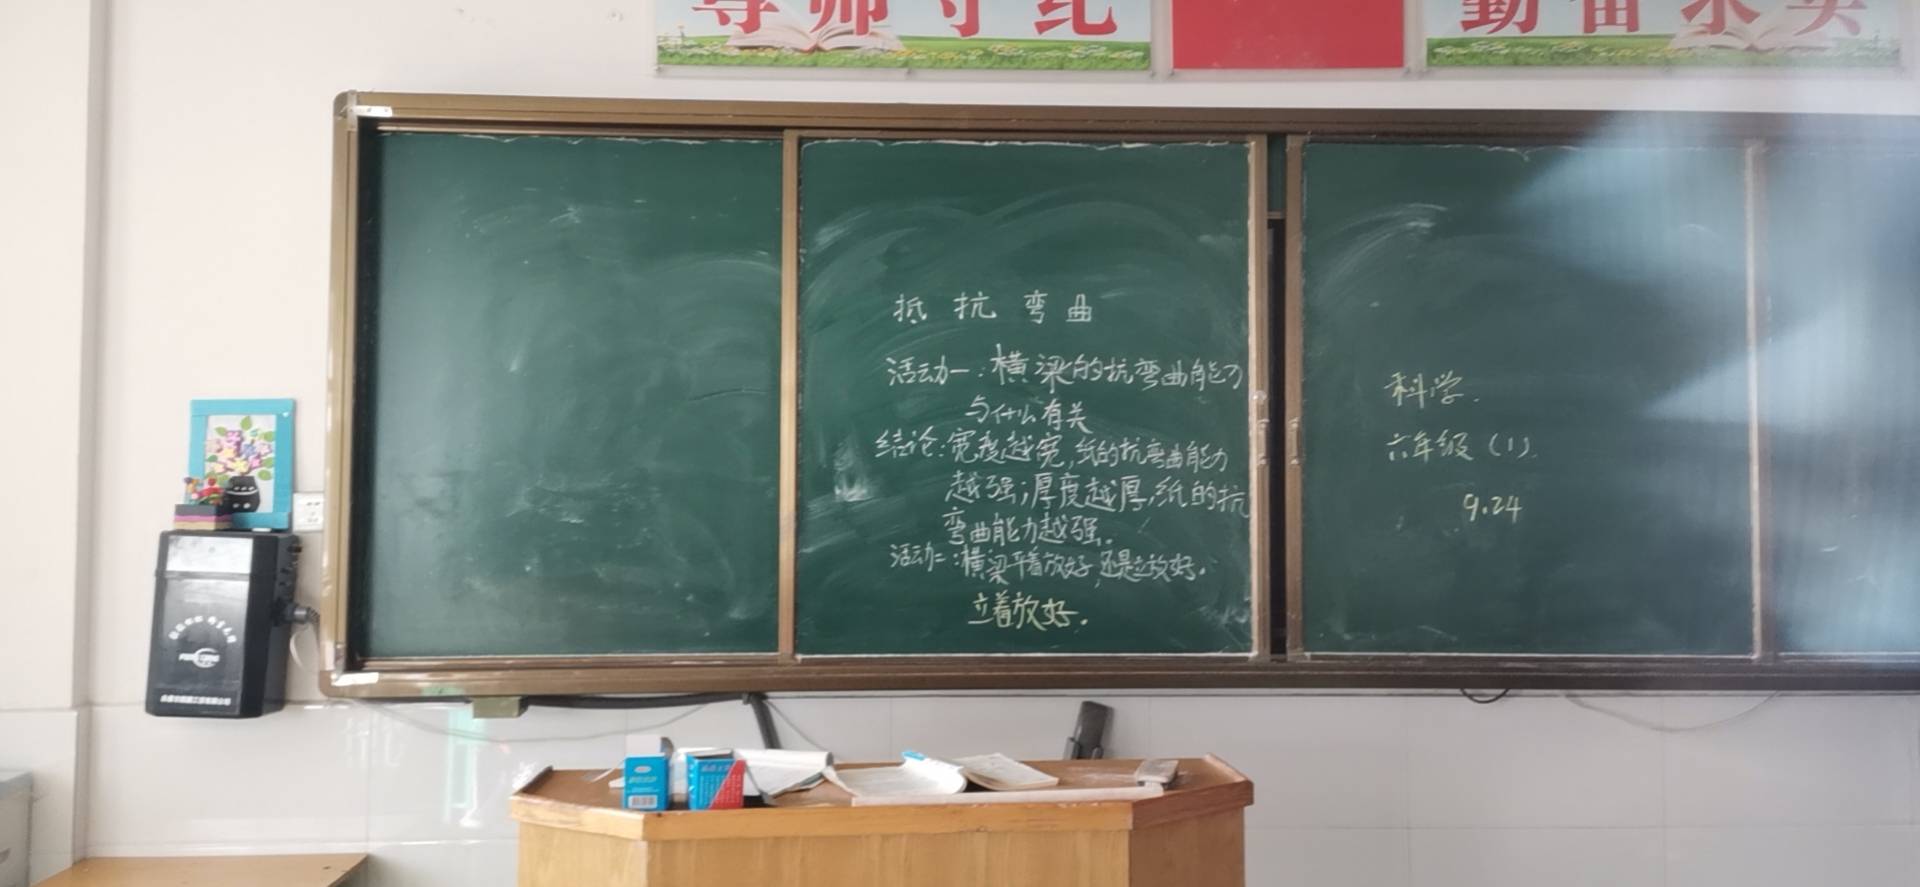 尊师守纪
勤奋求实
抵抗弯曲
活动一:横梁的抗弯曲能力
与什么有关
结论:宽度越宽,纸的抗弯曲能力
越强;厚度越厚,纸的抗
弯曲能力越强。
活动二:横梁平着放好,还是立放好。
立着放好.
科学.
六年级(1).
9.24